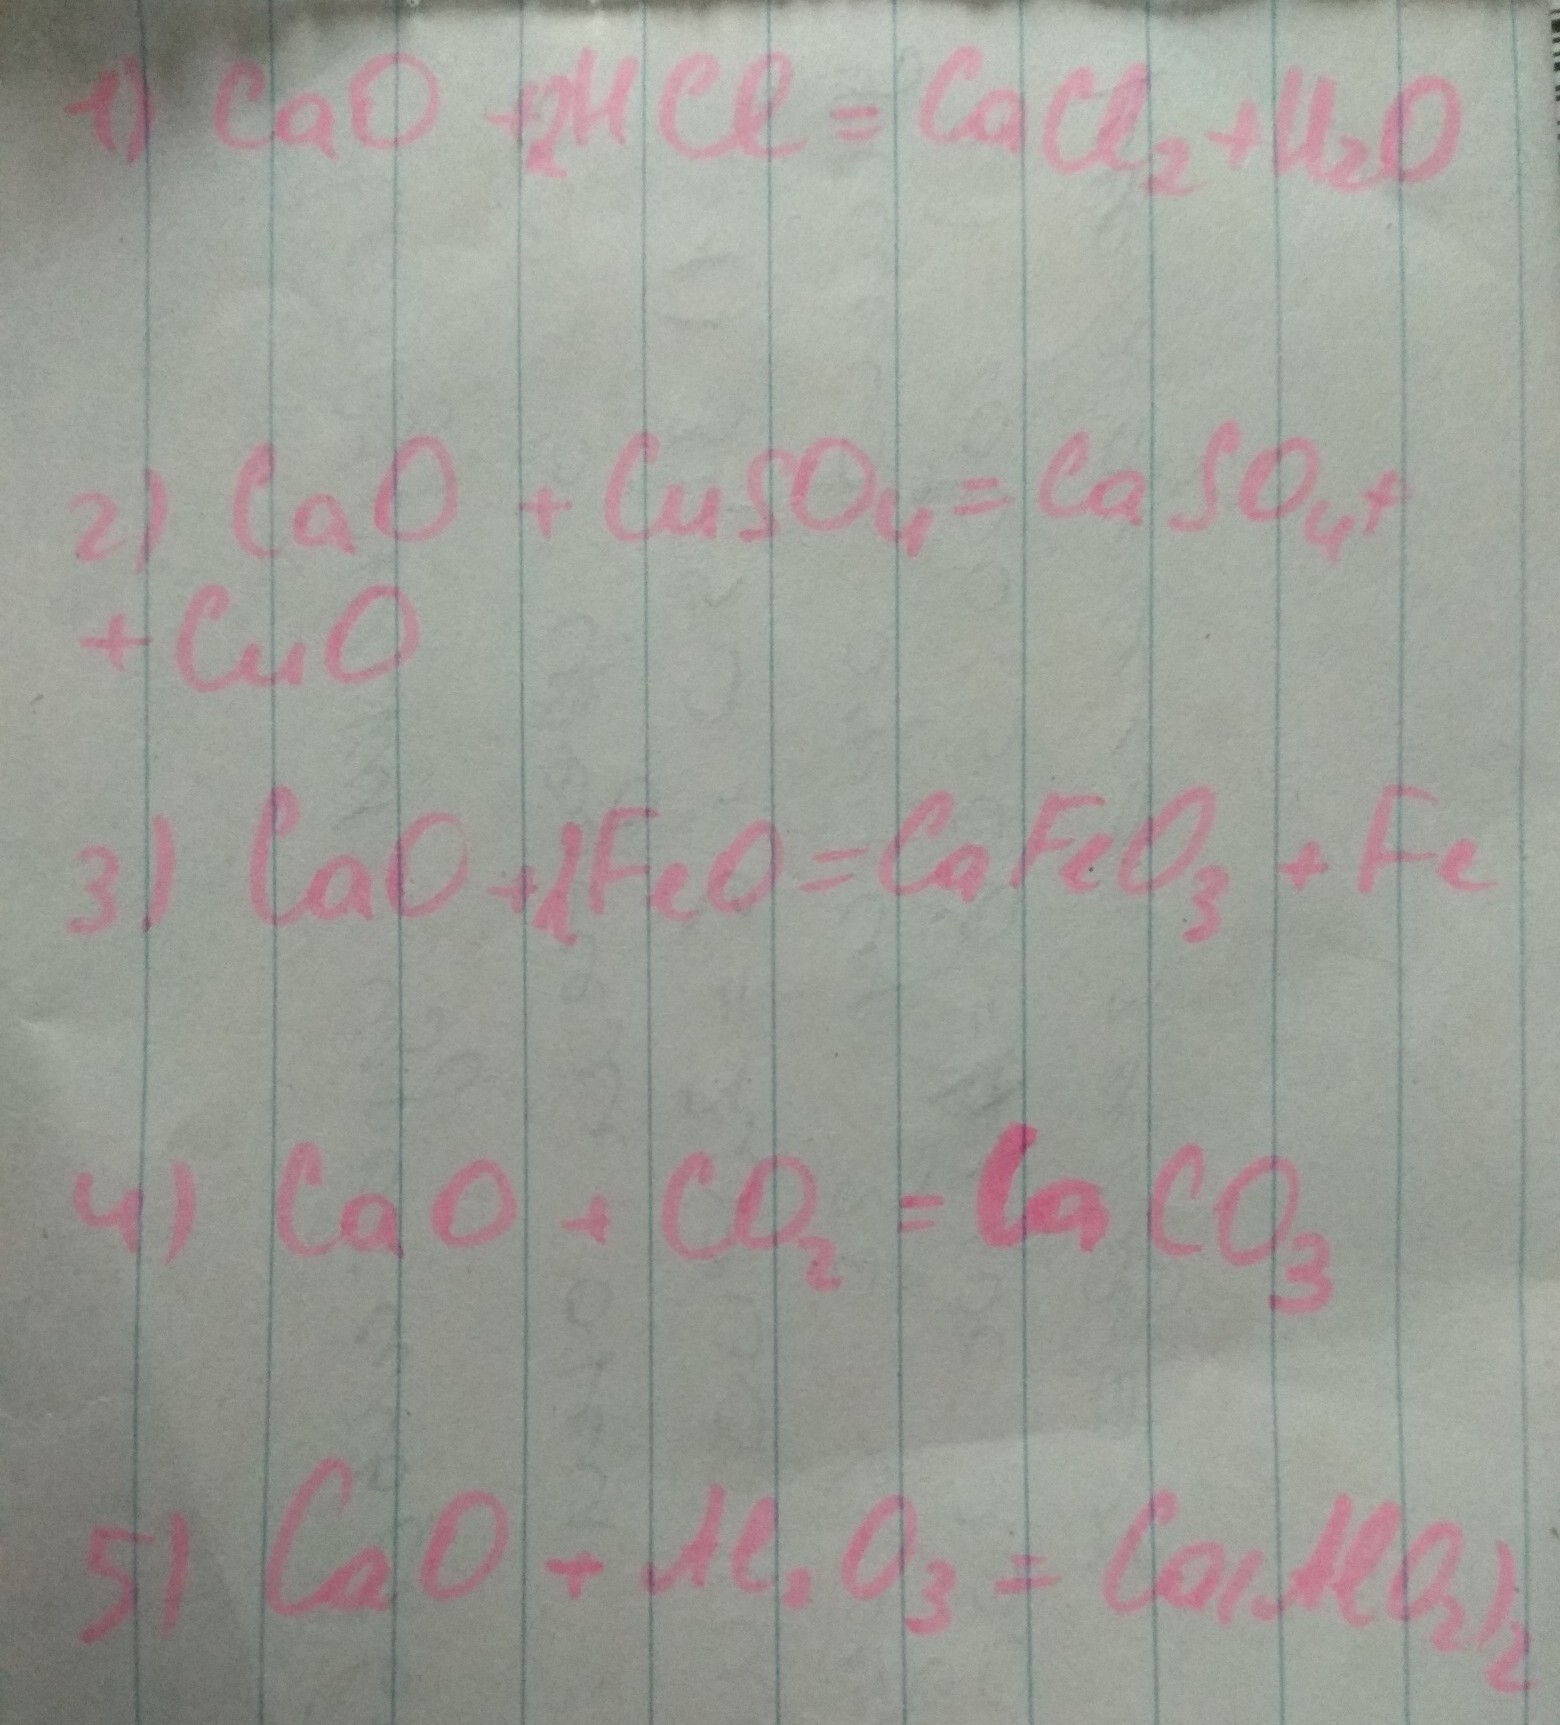 1) CaO +2HCl = CaCl₂ + H₂O
2) CaO + CuSO₄ = CaSO₄ +
+ CuO
3) CaO + 2FeO = CaFeO₃ + Fe
4) CaO + CO₂ = CaCO₃
5) CaO + Al₂O₃ = Ca(AlO₂)₂